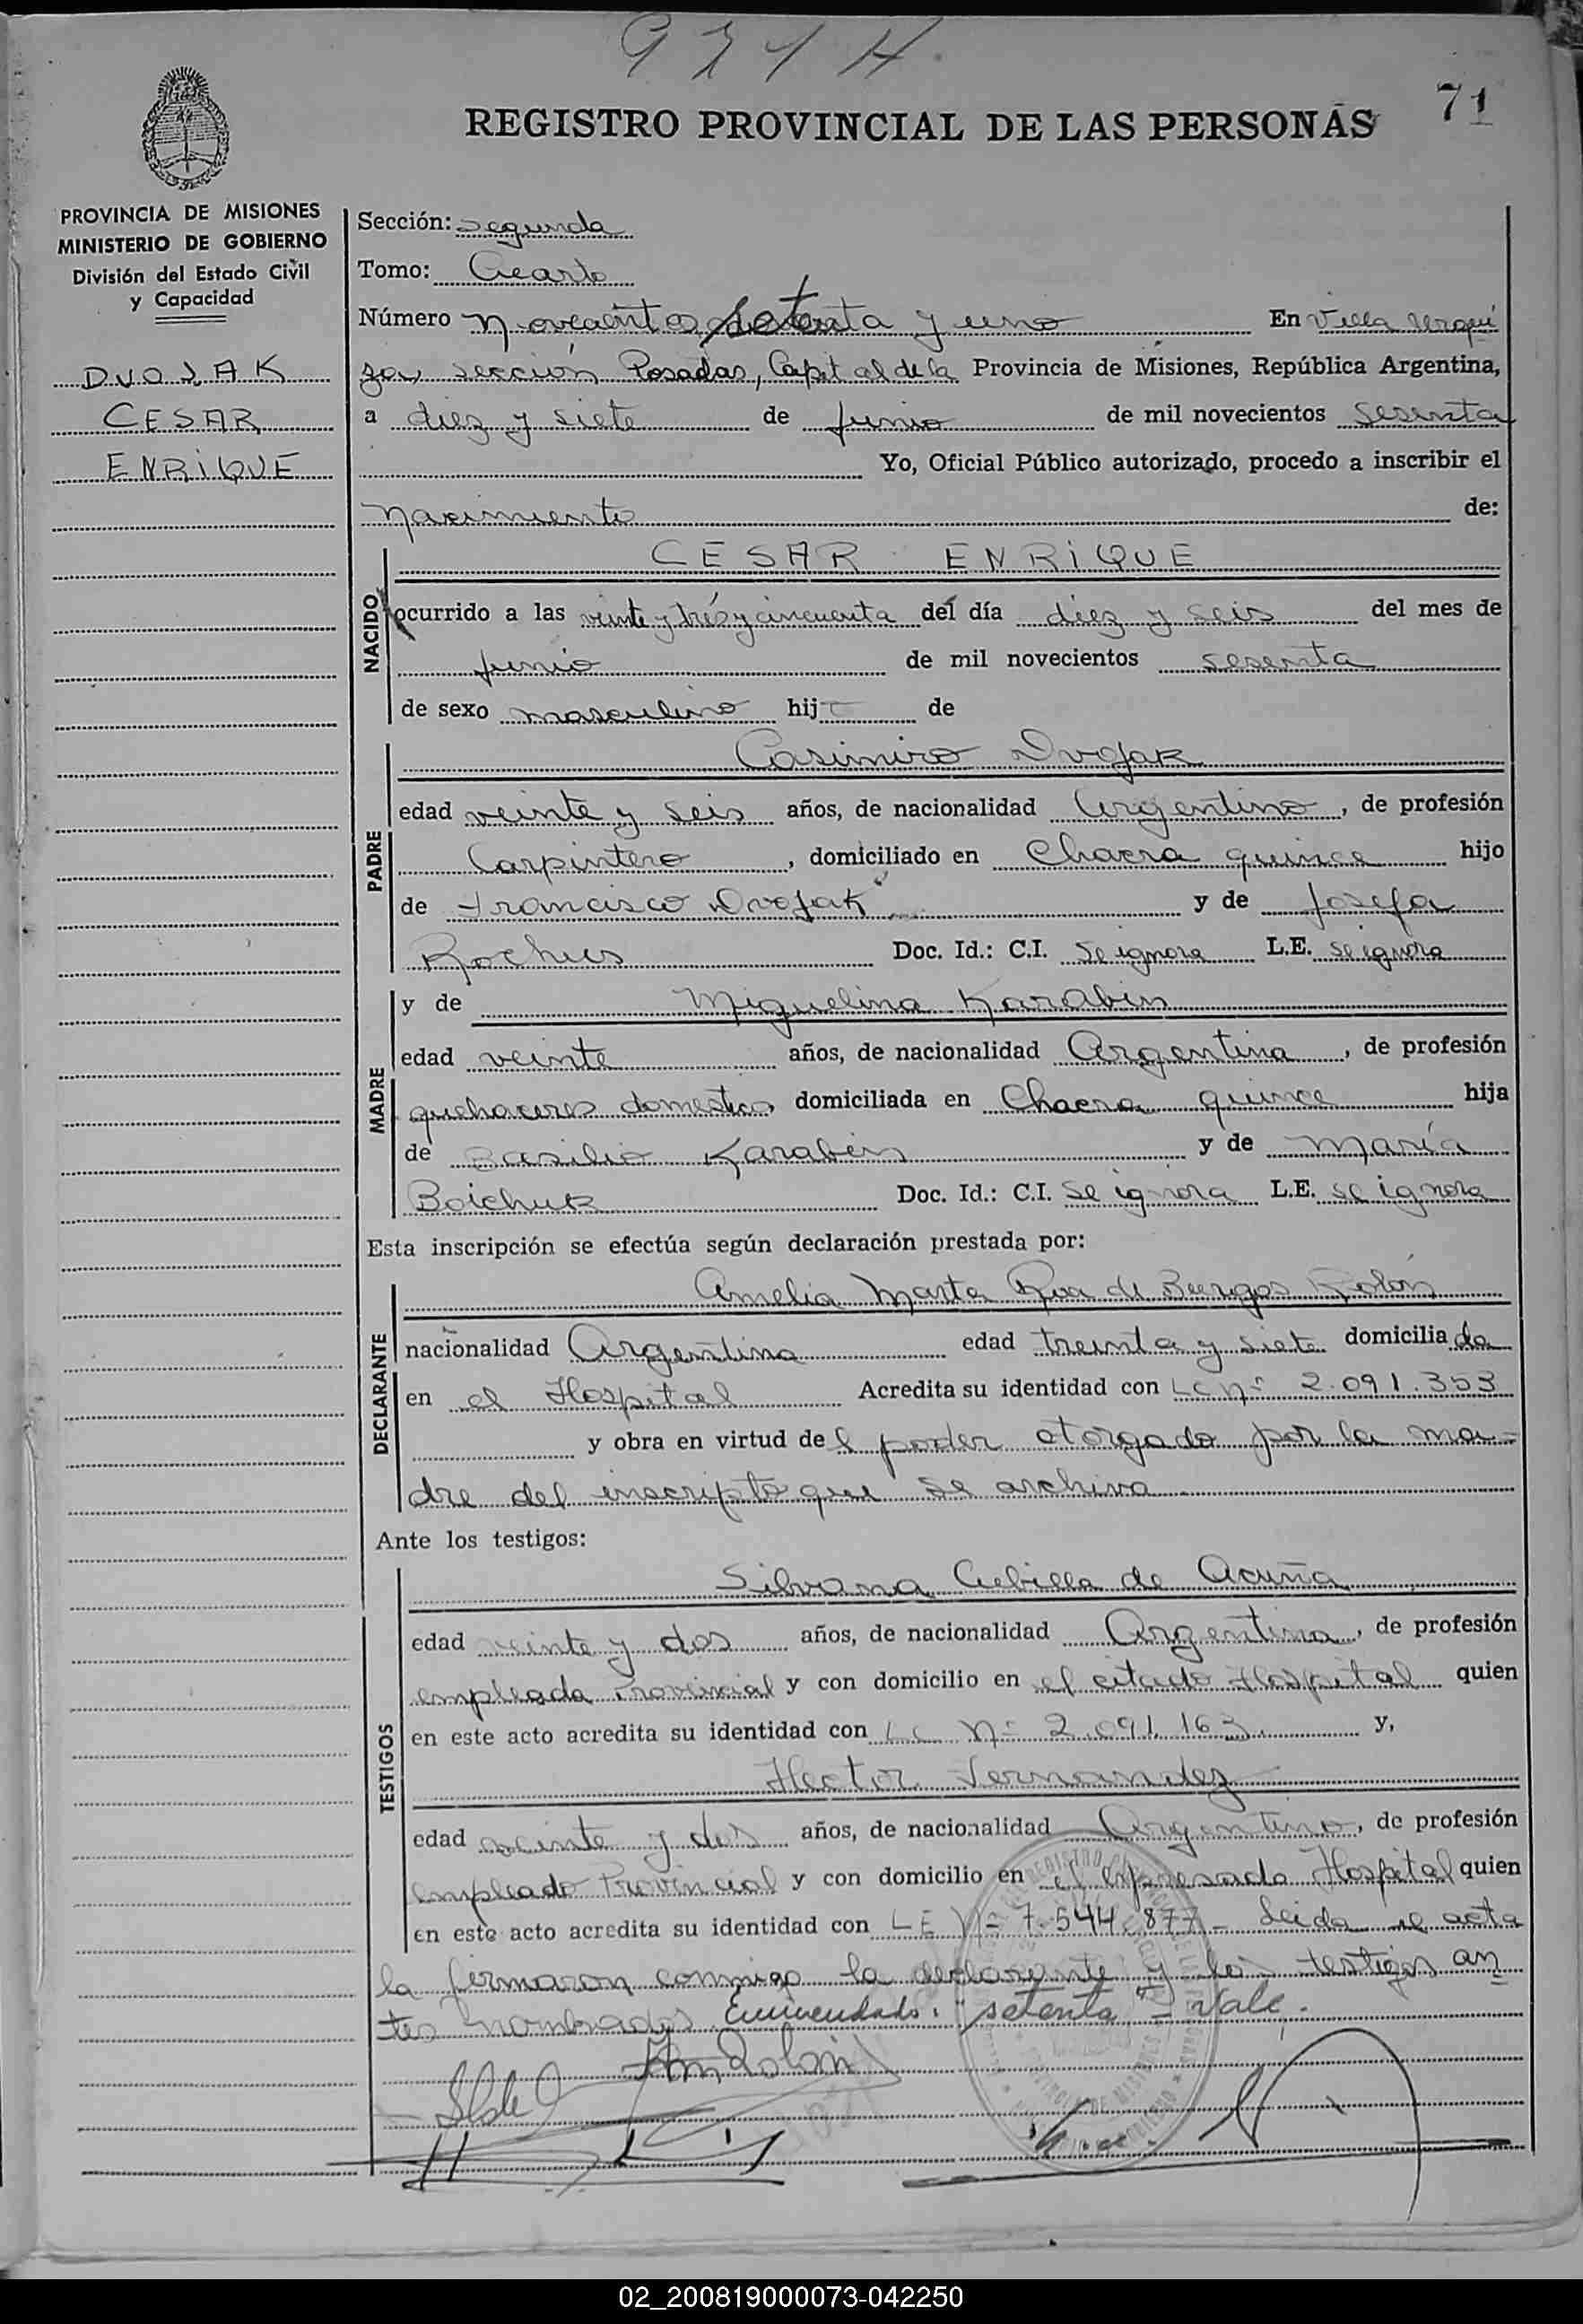 971 H.
71
REGISTRO PROVINCIAL DE LAS PERSONAS
PROVINCIA DE MISIONES
MINISTERIO DE GOBIERNO
División del Estado Civil
y Capacidad
DVOJAK
CESAR
ENRIQUE
Sección: segunda
Tomo: Cuarto
Número novecientos setenta y uno En Villa Urqui
za, sección Posadas, Capital de la Provincia de Misiones, República Argentina,
a diez y siete de junio de mil novecientos sesenta
Yo, Oficial Público autorizado, procedo a inscribir el
nacimiento de:
NACIDO
CESAR ENRIQUE
ocurrido a las veinte y tres y cincuenta del día diez y seis del mes de
junio de mil novecientos sesenta
de sexo masculino hij de
PADRE
Casimiro Dvojak
edad veinte y seis años, de nacionalidad Argentino, de profesión
Carpintero, domiciliado en Chacra quince hijo
de Francisco Dvojak y de Josefa
Rochus Doc. Id.: C.I. se ignora L.E. se ignora
MADRE
y de Miguelina Karabin
edad veinte años, de nacionalidad Argentina, de profesión
quehaceres domesticos domiciliada en Chacra quince hija
de Basilio Karabin y de María
Boichuk Doc. Id.: C.I. se ignora L.E. se ignora
Esta inscripción se efectúa según declaración prestada por:
DECLARANTE
Amelia Marta Roa de Burgos Rolón
nacionalidad Argentina edad treinta y siete domiciliada
en el Hospital Acredita su identidad con LC nº 2.091.353
y obra en virtud del poder otorgado por la ma-
dre del inscripto que se archiva
Ante los testigos:
TESTIGOS
Silvana Cubilla de Acuña
edad veinte y dos años, de nacionalidad Argentina, de profesión
empleada Provincial y con domicilio en el citado Hospital quien
en este acto acredita su identidad con LC Nº 2.091.163 y,
Hector Fernandez
edad veinte y dos años, de nacionalidad Argentino, de profesión
empleado Provincial y con domicilio en el expresado Hospital quien
en este acto acredita su identidad con LE Nº 7.544.877 - Leida el acta
la firmaron conmigo la declarante y los testigos an
tes nombrados. Enmendado: "setenta" - Vale.
02_200819000073-042250